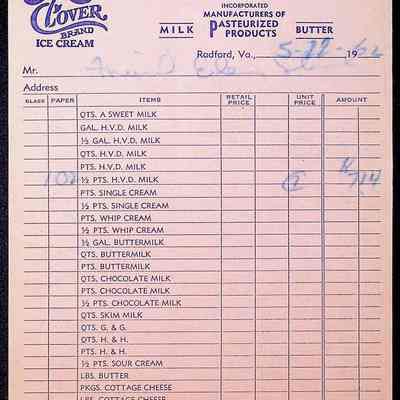 CLOVER
BRAND
ICE CREAM
INCORPORATED
MANUFACTURERS OF
MILK PASTEURIZED PRODUCTS BUTTER
Radford, Va., 19
Mr.
Address
GLASS PAPER ITEMS RETAIL PRICE UNIT PRICE AMOUNT
QTS. A SWEET MILK
GAL. H.V.D. MILK
½ GAL. H.V.D. MILK
QTS. H.V.D. MILK
PTS. H.V.D. MILK
102 ½ PTS. H.V.D. MILK @ 714
PTS. SINGLE CREAM
½ PTS. SINGLE CREAM
PTS. WHIP CREAM
½ PTS. WHIP CREAM
½ GAL. BUTTERMILK
QTS. BUTTERMILK
PTS. BUTTERMILK
QTS. CHOCOLATE MILK
PTS. CHOCOLATE MILK
½ PTS. CHOCOLATE MILK
QTS. SKIM MILK
QTS. G. & G.
QTS. H. & H.
PTS. H. & H.
½ PTS. SOUR CREAM
LBS. BUTTER
PKGS. COTTAGE CHEESE
LBS. COTTAGE CHEESE